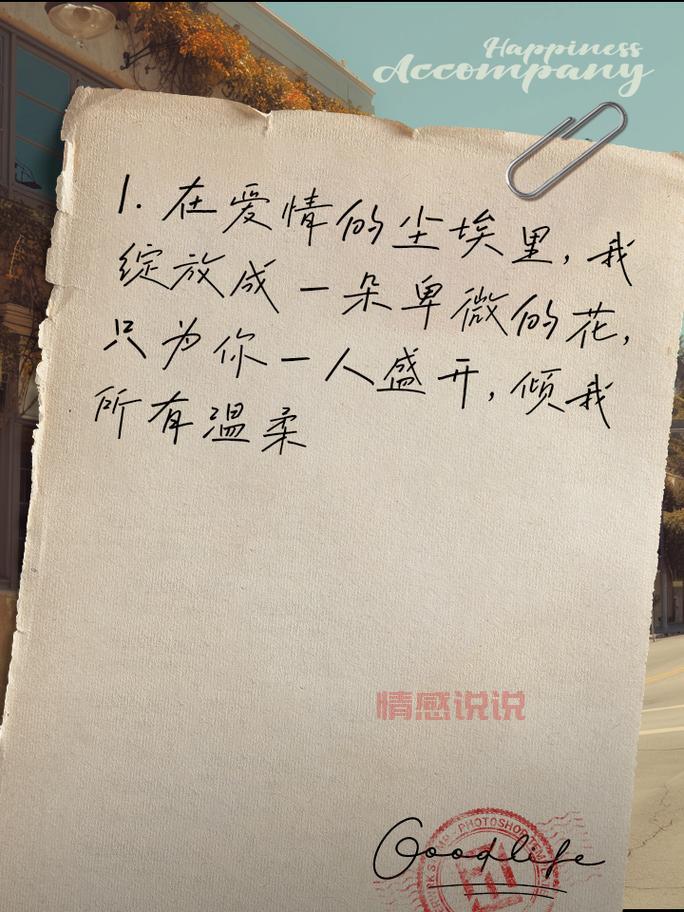 Happiness
Accompany
1. 在爱情的尘埃里，我
绽放成一朵卑微的花，
只为你一人盛开，倾我
所有温柔
情感说说
PHOTOSHOP
Goodlife